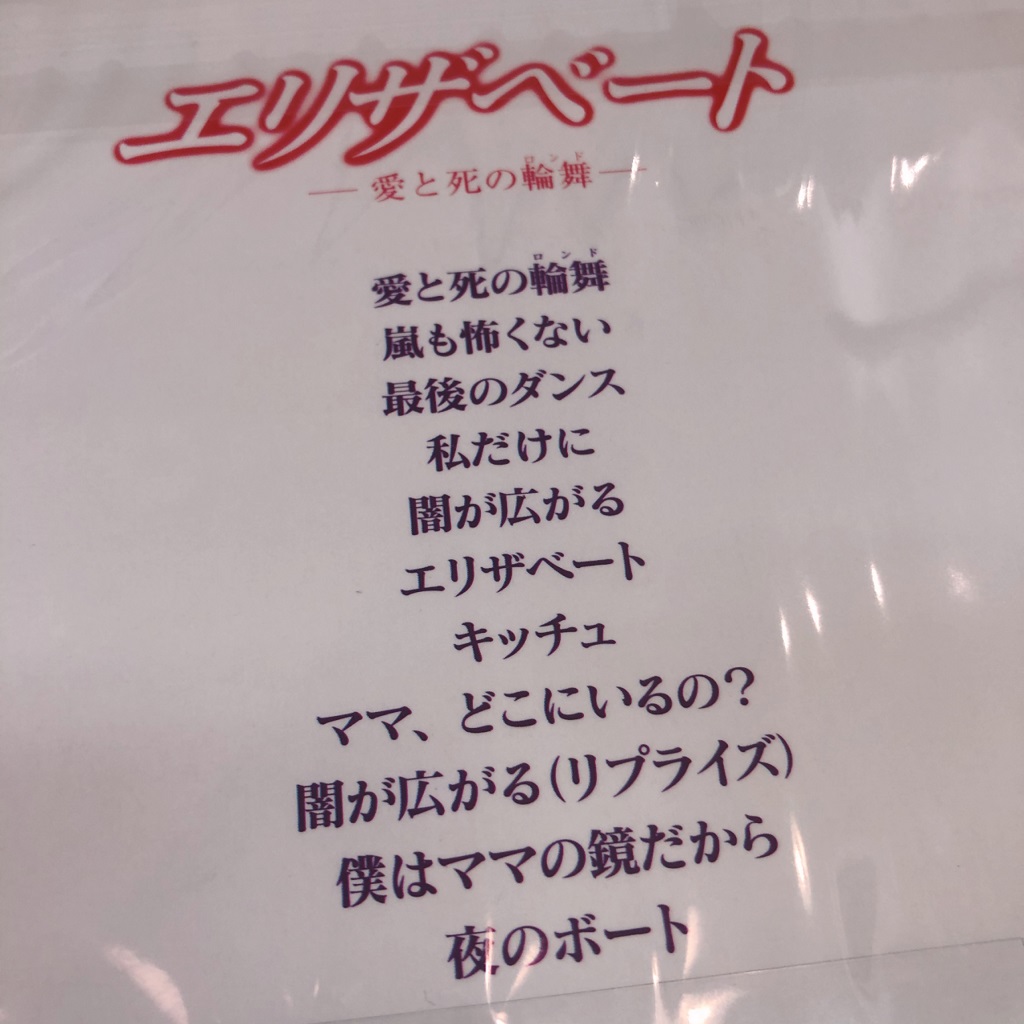 エリザベート
― 愛と死の輪舞 ―
ロンド
愛と死の輪舞
ロンド
嵐も怖くない
最後のダンス
私だけに
闇が広がる
エリザベート
キッチュ
ママ、どこにいるの?
闇が広がる(リプライズ)
僕はママの鏡だから
夜のボート